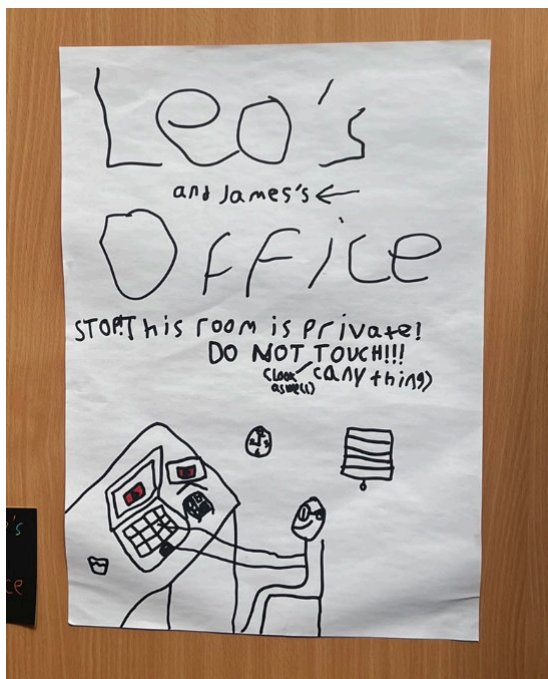 Leo's
and James's ←
OFFice
STOP!This room is Private!
DO NOT TOUCH!!!
(look aswell) (any thing)
's
ce